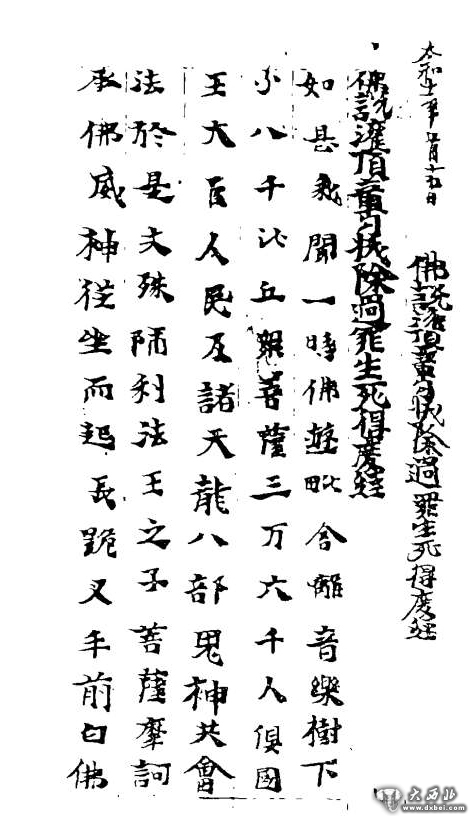 太和十一年五月十五日
佛說灌頂章句拔除過罪生死得度經
佛說灌頂章句拔除過罪生死得度經
如是我聞一時佛遊毗舍離音樂樹下
八千比丘衆菩薩三万六千人俱國
王大臣人民及諸天龍八部鬼神共會
法於是文殊師利法王之子菩薩摩訶
承佛威神從坐而起長跪叉手前白佛
大西北
www.dxbei.com